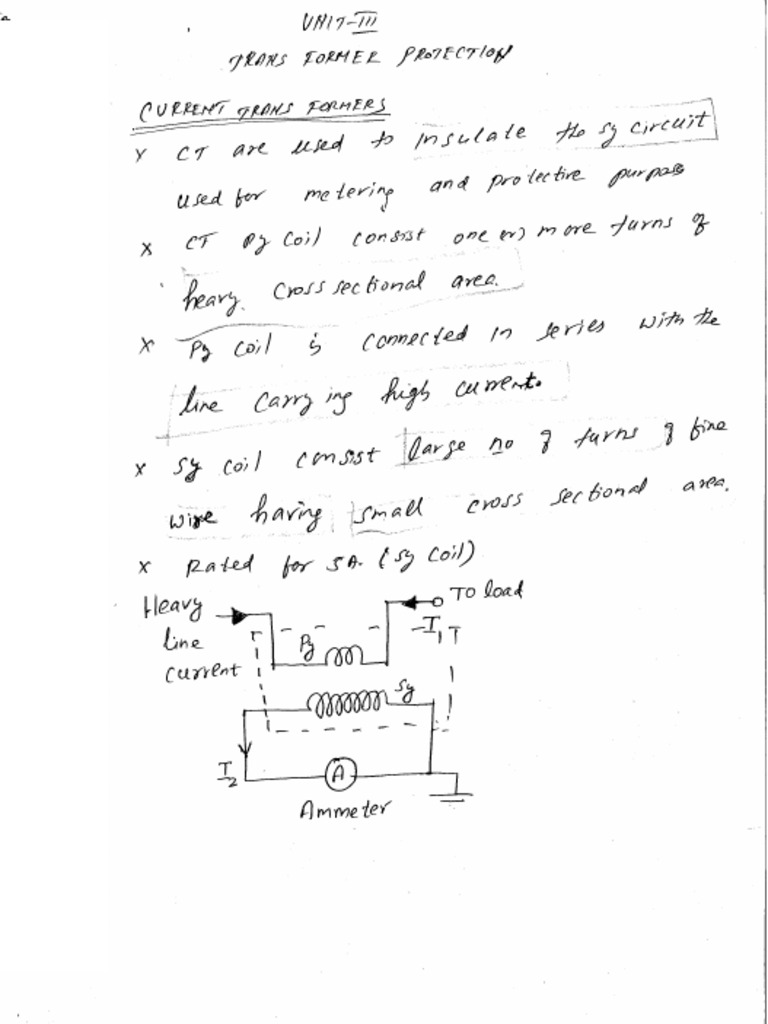 UNIT-III
TRANS FORMER PROTECTION
CURRENT TRANS FORMERS
x CT are used to insulate the sy circuit
used for metering and protective purpose
x CT Py coil consist one (or) more turns of
heavy. Cross sectional area.
x Py coil is connected in series with the
line carrying high current.
x Sy coil consist large no of turns of fine
wire having small cross sectional area.
x Rated for 5A. (Sy coil)
Heavy
line
current
To load
I1
Py
Sy
I2
A
Ammeter